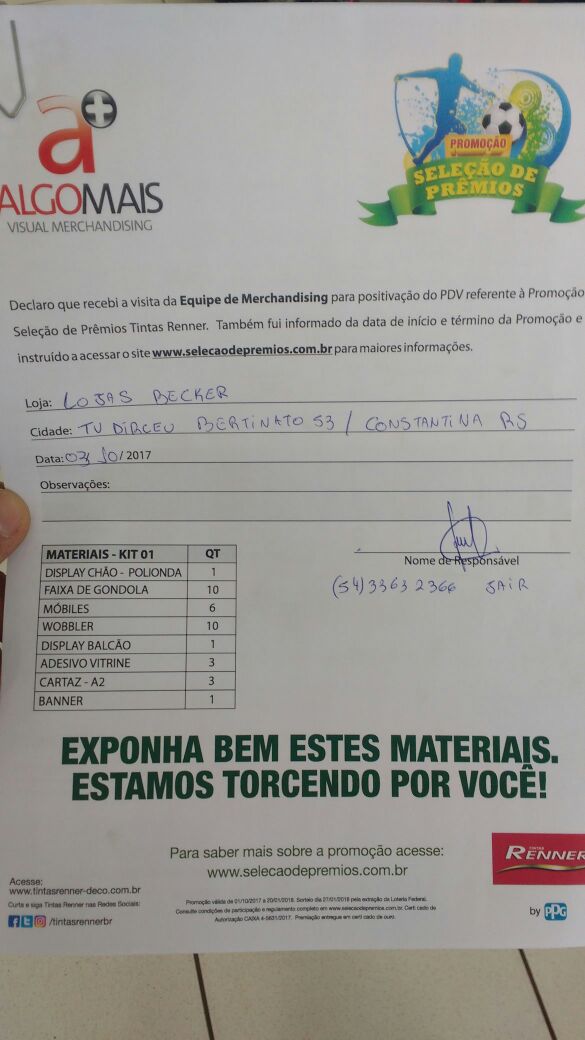 a+
ALGOMAIS
VISUAL MERCHANDISING
PROMOÇÃO
SELEÇÃO DE
PRÊMIOS
Declaro que recebi a visita da Equipe de Merchandising para positivação do PDV referente à Promoção
Seleção de Prêmios Tintas Renner. Também fui informado da data de início e término da Promoção e
instruído a acessar o site www.selecaodepremios.com.br para maiores informações.
Loja: LOJAS BECKER
Cidade: TV DIRCEU BERTINATO 53 / CONSTANTINA RS
Data: 03/10/2017
Observações:
Nome de Responsável
(54) 3363 2366 JAIR
MATERIAIS - KIT 01 QT
DISPLAY CHÃO - POLIONDA 1
FAIXA DE GONDOLA 10
MÓBILES 6
WOBBLER 10
DISPLAY BALCÃO 1
ADESIVO VITRINE 3
CARTAZ - A2 3
BANNER 1
EXPONHA BEM ESTES MATERIAIS.
ESTAMOS TORCENDO POR VOCÊ!
Para saber mais sobre a promoção acesse:
www.selecaodepremios.com.br
TINTAS
RENNER
by PPG
Acesse:
www.tintasrenner-deco.com.br
Curta e siga Tintas Renner nas Redes Sociais:
/tintasrennerbr
Promoção válida de 01/10/2017 a 20/01/2018. Sorteio dia 27/01/2018 pela extração da Loteria Federal.
Consulte condições de participação e regulamento completo em www.selecaodepremios.com.br. Certi cado de
Autorização CAIXA 4-5631/2017. Premiação entregue em certi cado de ouro.